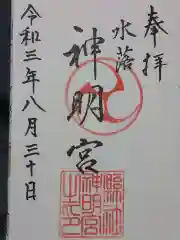 奉拝
水落
神明宮
令和三年八月三十日
神明宮